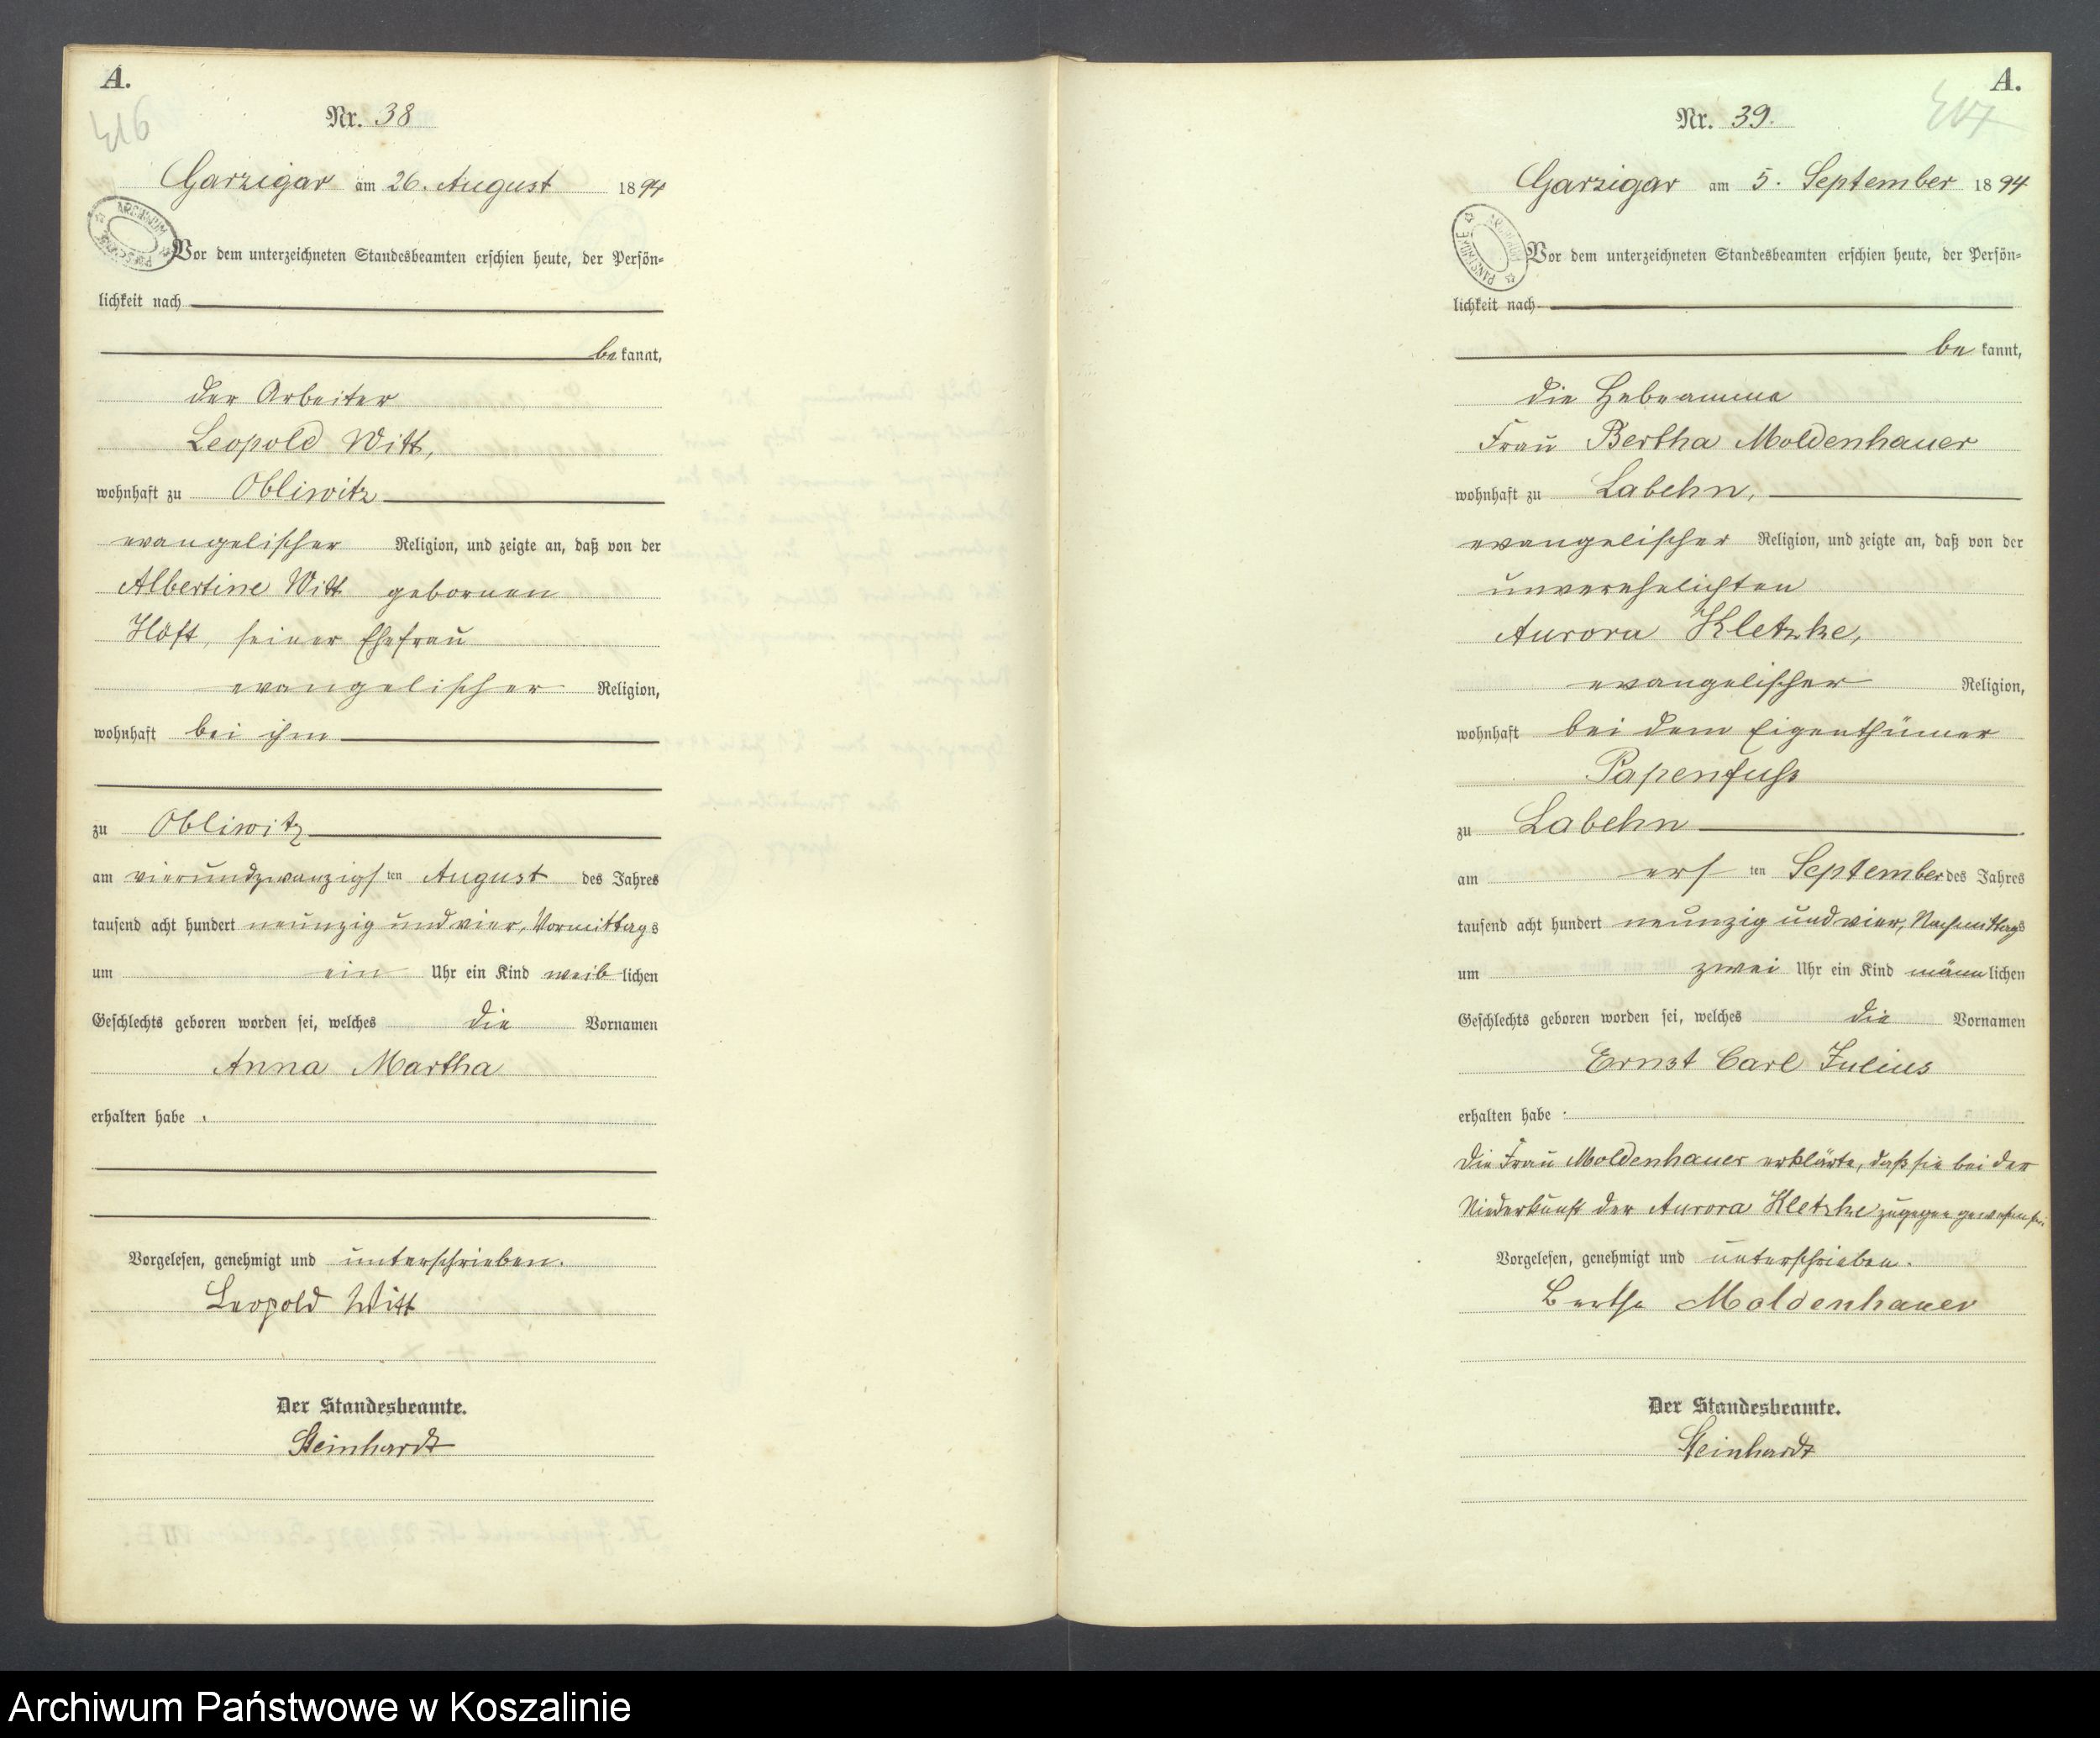 A.
Nr. 38
Garzigar am 26. August 1894
Vor dem unterzeichneten Standesbeamten erschien heute, der Persön-
lichkeit nach
be kannt,
der Arbeiter
Leopold Witt,
wohnhaft zu Obliwitz
evangelischer Religion, und zeigte an, daß von der
Albertine Witt gebornen
Höft, seiner Ehefrau
evangelischer Religion,
wohnhaft bei ihm
zu Obliwitz
am vierundzwanzigs ten August des Jahres
tausend acht hundert neunzig und vier, Vormittags
um ein Uhr ein Kind weib lichen
Geschlechts geboren worden sei, welches die Vornamen
Anna Martha
erhalten habe.
Vorgelesen, genehmigt und unterschrieben.
Leopold Witt
Der Standesbeamte.
Steinhardt
A.
Nr. 39.
Garzigar am 5. September 1894
Vor dem unterzeichneten Standesbeamten erschien heute, der Persön-
lichkeit nach
be kannt,
die Hebeamme
Frau Bertha Moldenhauer
wohnhaft zu Labehn,
evangelischer Religion, und zeigte an, daß von der
unverehelichten
Aurora Kletzke,
evangelischer Religion,
wohnhaft bei dem Eigenthümer
Papenfuß
zu Labehn
am ers ten September des Jahres
tausend acht hundert neunzig und vier, Nachmittags
um zwei Uhr ein Kind männ lichen
Geschlechts geboren worden sei, welches die Vornamen
Ernst Carl Julius
erhalten habe.
Die Frau Moldenhauer erklärte, daß sie bei der
Niederkunft der Aurora Kletzke zugegen gewesen sei.
Vorgelesen, genehmigt und unterschrieben.
Bertha Moldenhauer
Der Standesbeamte.
Steinhardt
Archiwum Państwowe w Koszalinie